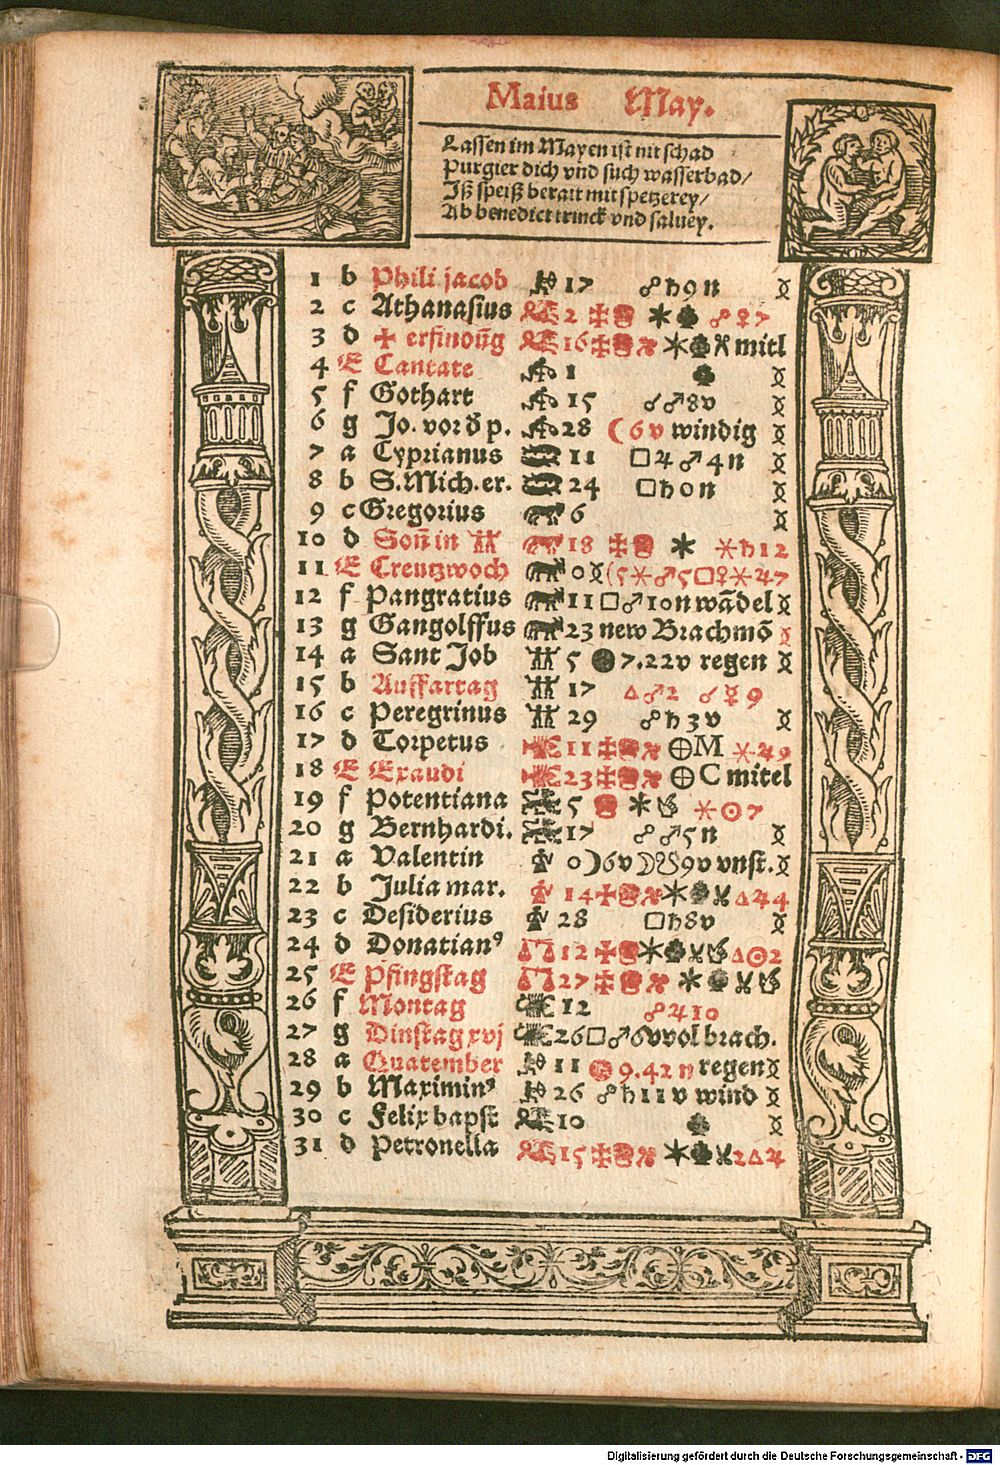 Maius May.
Lassen im Mayen ist nit schad
Purgier dich vnd such wasserbad/
Iß speiß berait mit spetzerey/
Ab benedict trinck vnd saluey.
1 b Phili jacob 17 ☍♄9n
2 c Athanasius 2 ☍♀7
3 d + erfinoūg 16 mitl
4 E Cantate 1
5 f Gothart 15 ☌♂8v
6 g Jo. vor d̄ p. 28 ☾6v windig
7 a Cyprianus 11 □♃♂4n
8 b S.Mich.er. 24 □♄0n
9 c Gregorius 6
10 d Soñ in 18 ⚹♄12
11 E Creutzwoch
12 f Pangratius 11□♂10n wādel
13 g Gangolffus 23 new Brachmō
14 a Sant Job 5 7.22v regen
15 b Auffartag 17 △♂2 ☌☿9
16 c Peregrinus 29 ☍♄3v
17 d Torpetus 11 ⊕M ⚹♃9
18 E Exaudi 23 ⊕C mitel
19 f Potentiana 5 ⚹☉7
20 g Bernhardi. 17 ☍♂5n
21 a Valentin 0☽6v 9v vnst.
22 b Julia mar. 14 △♃4
23 c Desiderius 28 □♄8v
24 d Donatianꝰ 12 △☉2
25 E Pfingstag 27
26 f Montag 12 ☍♃10
27 g Dinstag xvj 26□♂6v vol brach.
28 a Quatember 11 9.42n regen
29 b Maximinꝰ 26 ☍♄11v wind
30 c Felix bapst 10
31 d Petronella 15 2△♃
Digitalisierung gefördert durch die Deutsche Forschungsgemeinschaft - DFG